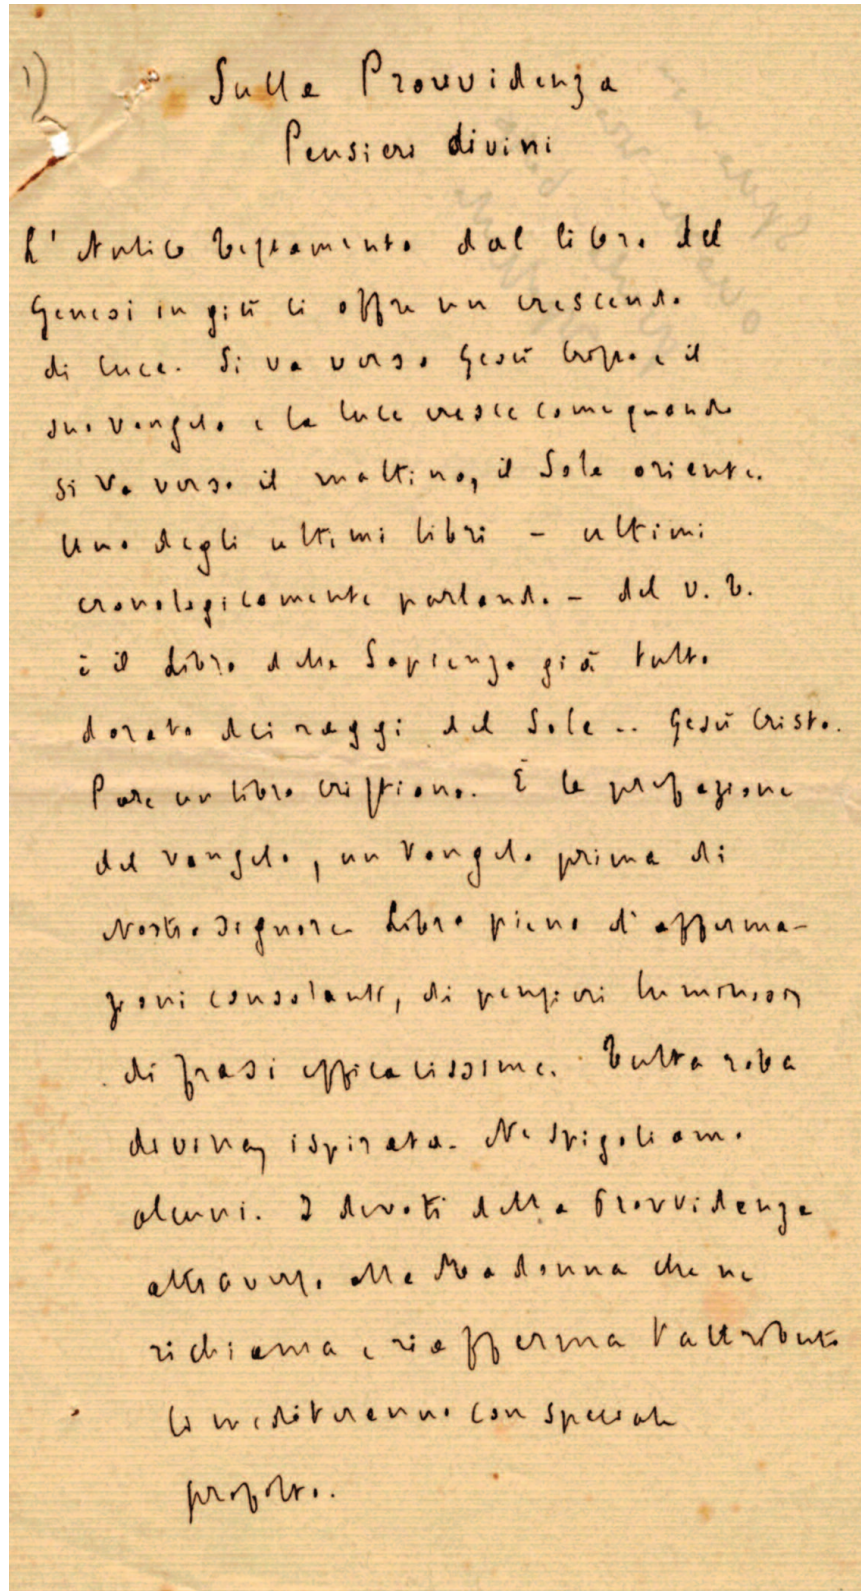 1)
Sulla Provvidenza
Pensieri divini
L'Antico Testamento dal libro del
Genesi in giù ci offre un crescendo
di luce. Si va verso Gesù Cristo e il
suo Vangelo e la luce cresce come quando
si va verso il mattino, il Sole oriente.
Uno degli ultimi libri - ultimi
cronologicamente parlando - del V. T.
è il Libro della Sapienza già tutto
dorato dei raggi del Sole .. Gesù Cristo.
Pare un libro cristiano. È la prefazione
del Vangelo, un Vangelo prima di
Nostro Signore. Libro pieno d'afferma-
zioni consolanti, di pensieri luminosi,
di frasi efficacissime. Tutta roba
divina, ispirata. Ne spigoliamo
alcuni. I devoti della Provvidenza
attraverso alla Madonna che ne
richiama e riafferma l'attributo
li mediteranno con speciale
profitto.